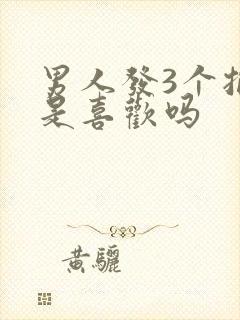 男人發3个
是喜歡吗
黄驪